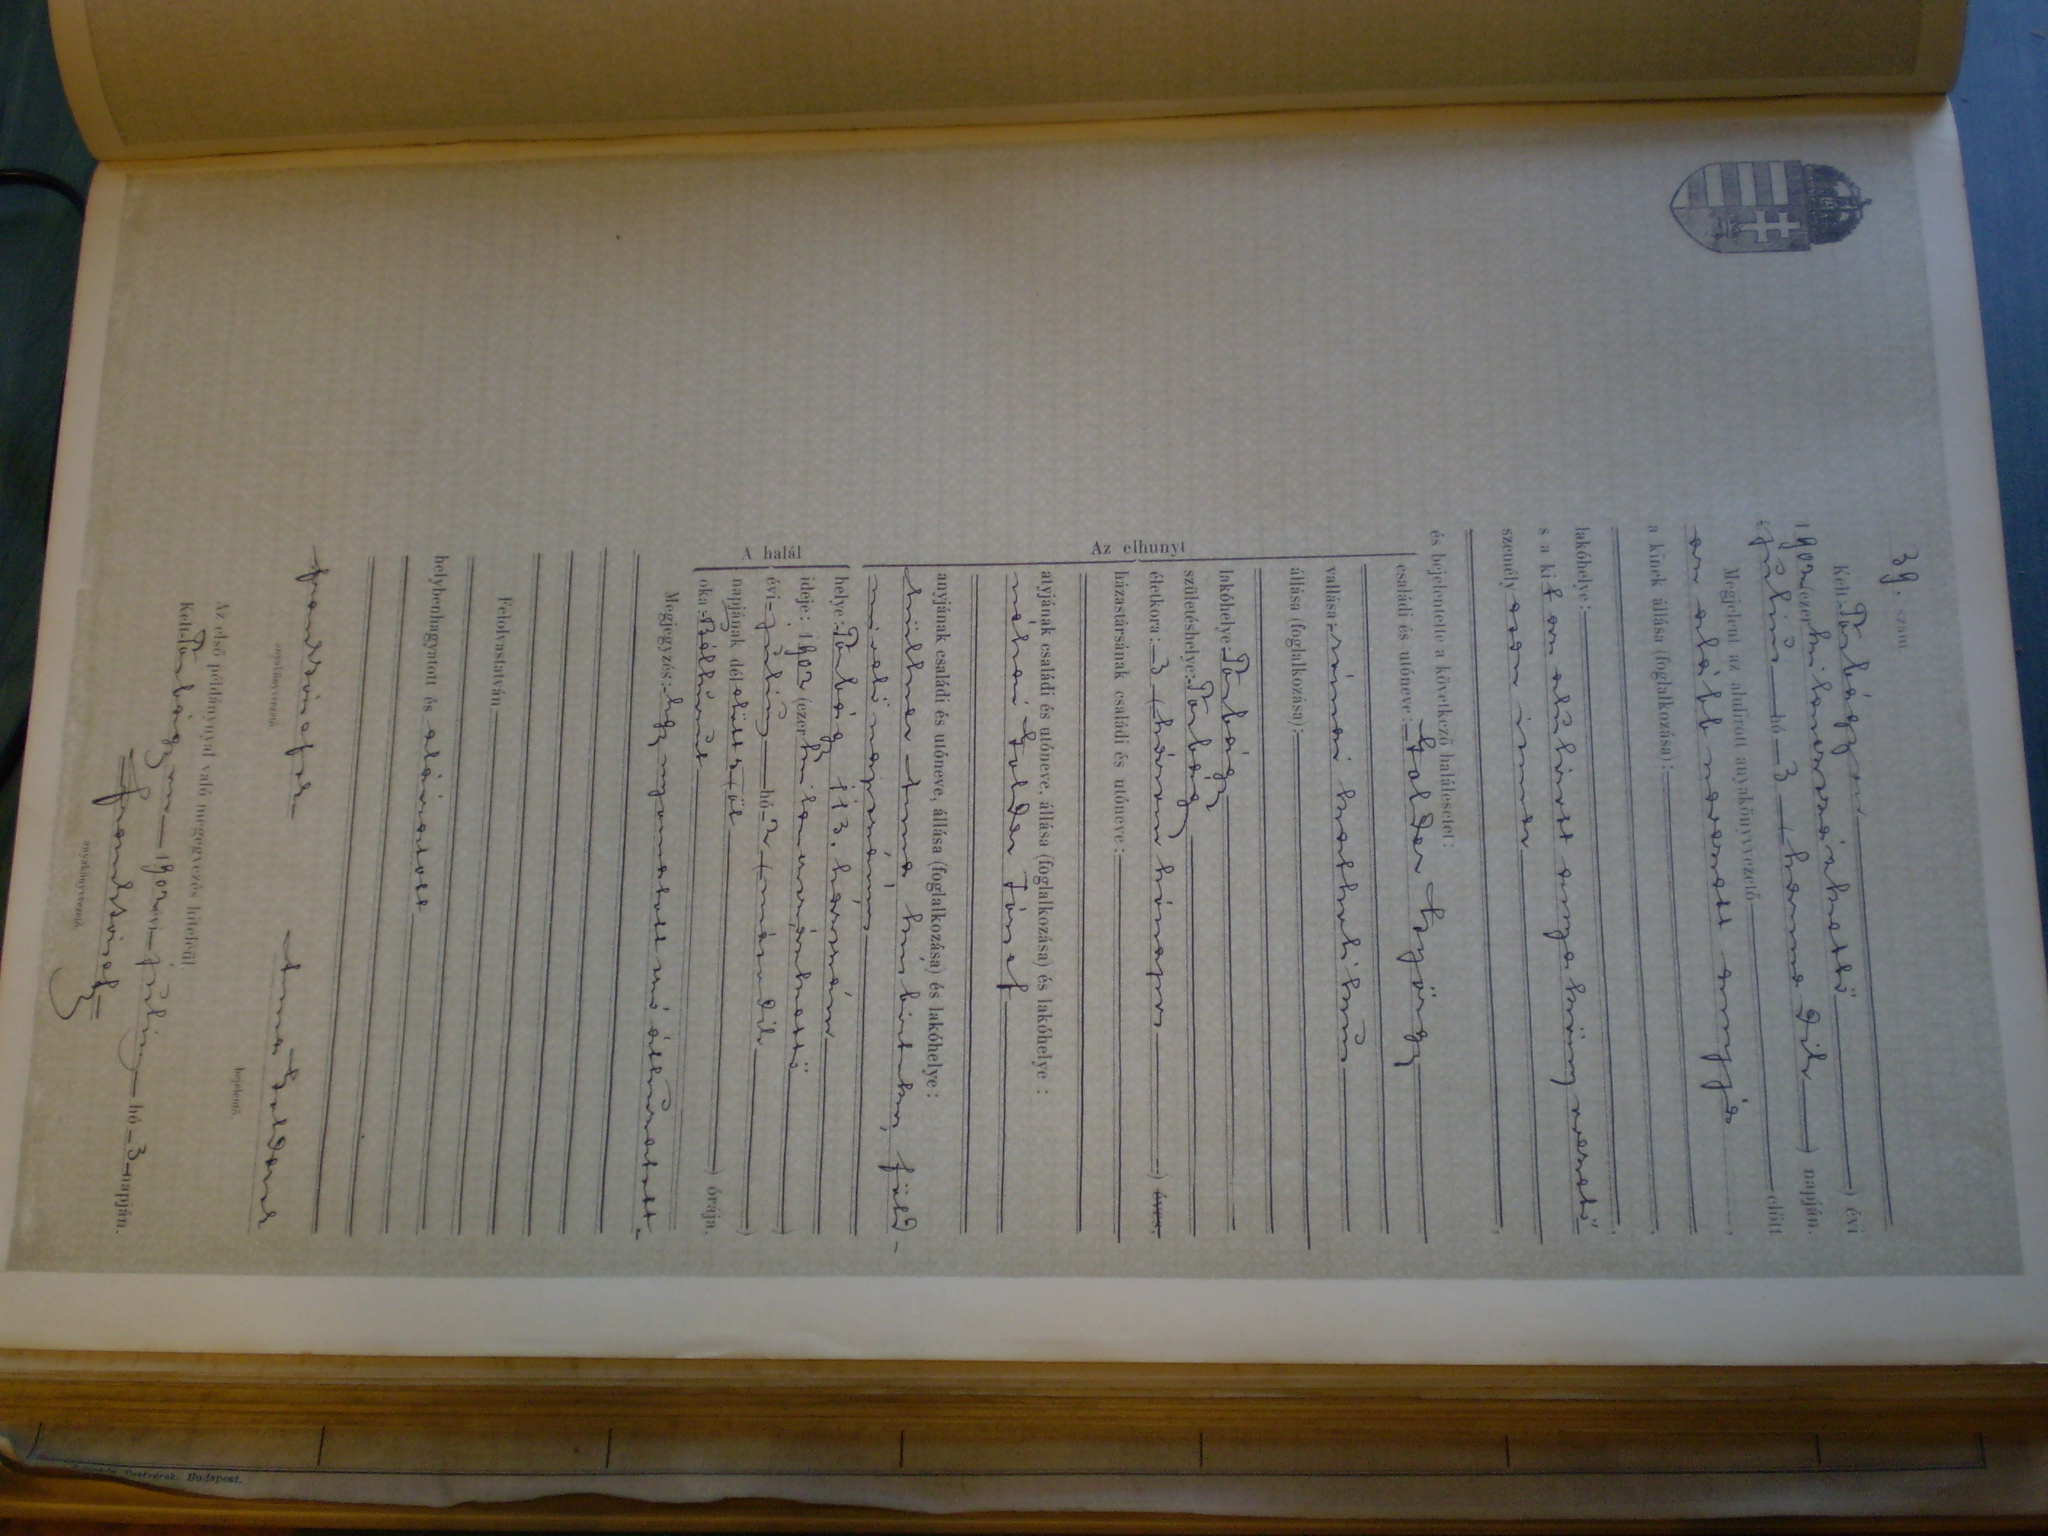 39. szám.
Kelt Torbágy on, 
1902 (ezer kilencszázkettő ) évi
július hó 3 (harma dik ) napján.
Megjelent az alulírott anyakönyvvezető előtt
az alább nevezett anyja
a kinek állása (foglalkozása):
lakóhelye:
s a kit az alulírott anyakönyvvezető
személyesen ismer
és bejelentette a következő halálesetet:
Az elhunyt
családi és utóneve: György
vallása: római katholikus
állása (foglalkozása):
lakóhelye: Torbágy
születéshelye: Torbágy
életkora: 3 (három hónapos ) éves,
házastársának családi és utóneve:
atyjának családi és utóneve, állása (foglalkozása) és lakóhelye:
néhai József
anyjának családi és utóneve, állása (foglalkozása) és lakóhelye:
Anna, kisbirtokos, föld-
művelő napszámos
A halál
helye: Torbágy 113. házszám
ideje: 1902 (ezer kilencszázkettő )
évi július hó 2 (második )
napjának dél előtt 5 (öt ) órája.
oka: Bélhurut
Megjegyzés: hogy nyomatott szó áthúzatott.
Felolvastatván,
helybenhagyatott és aláíratott
anyakönyvvezető. bejelentő.
Az első példánynyal való megegyezés hiteléül
Kelt Torbágy on 1902 évi július hó 3 napján.
anyakönyvvezető.
Budapest.